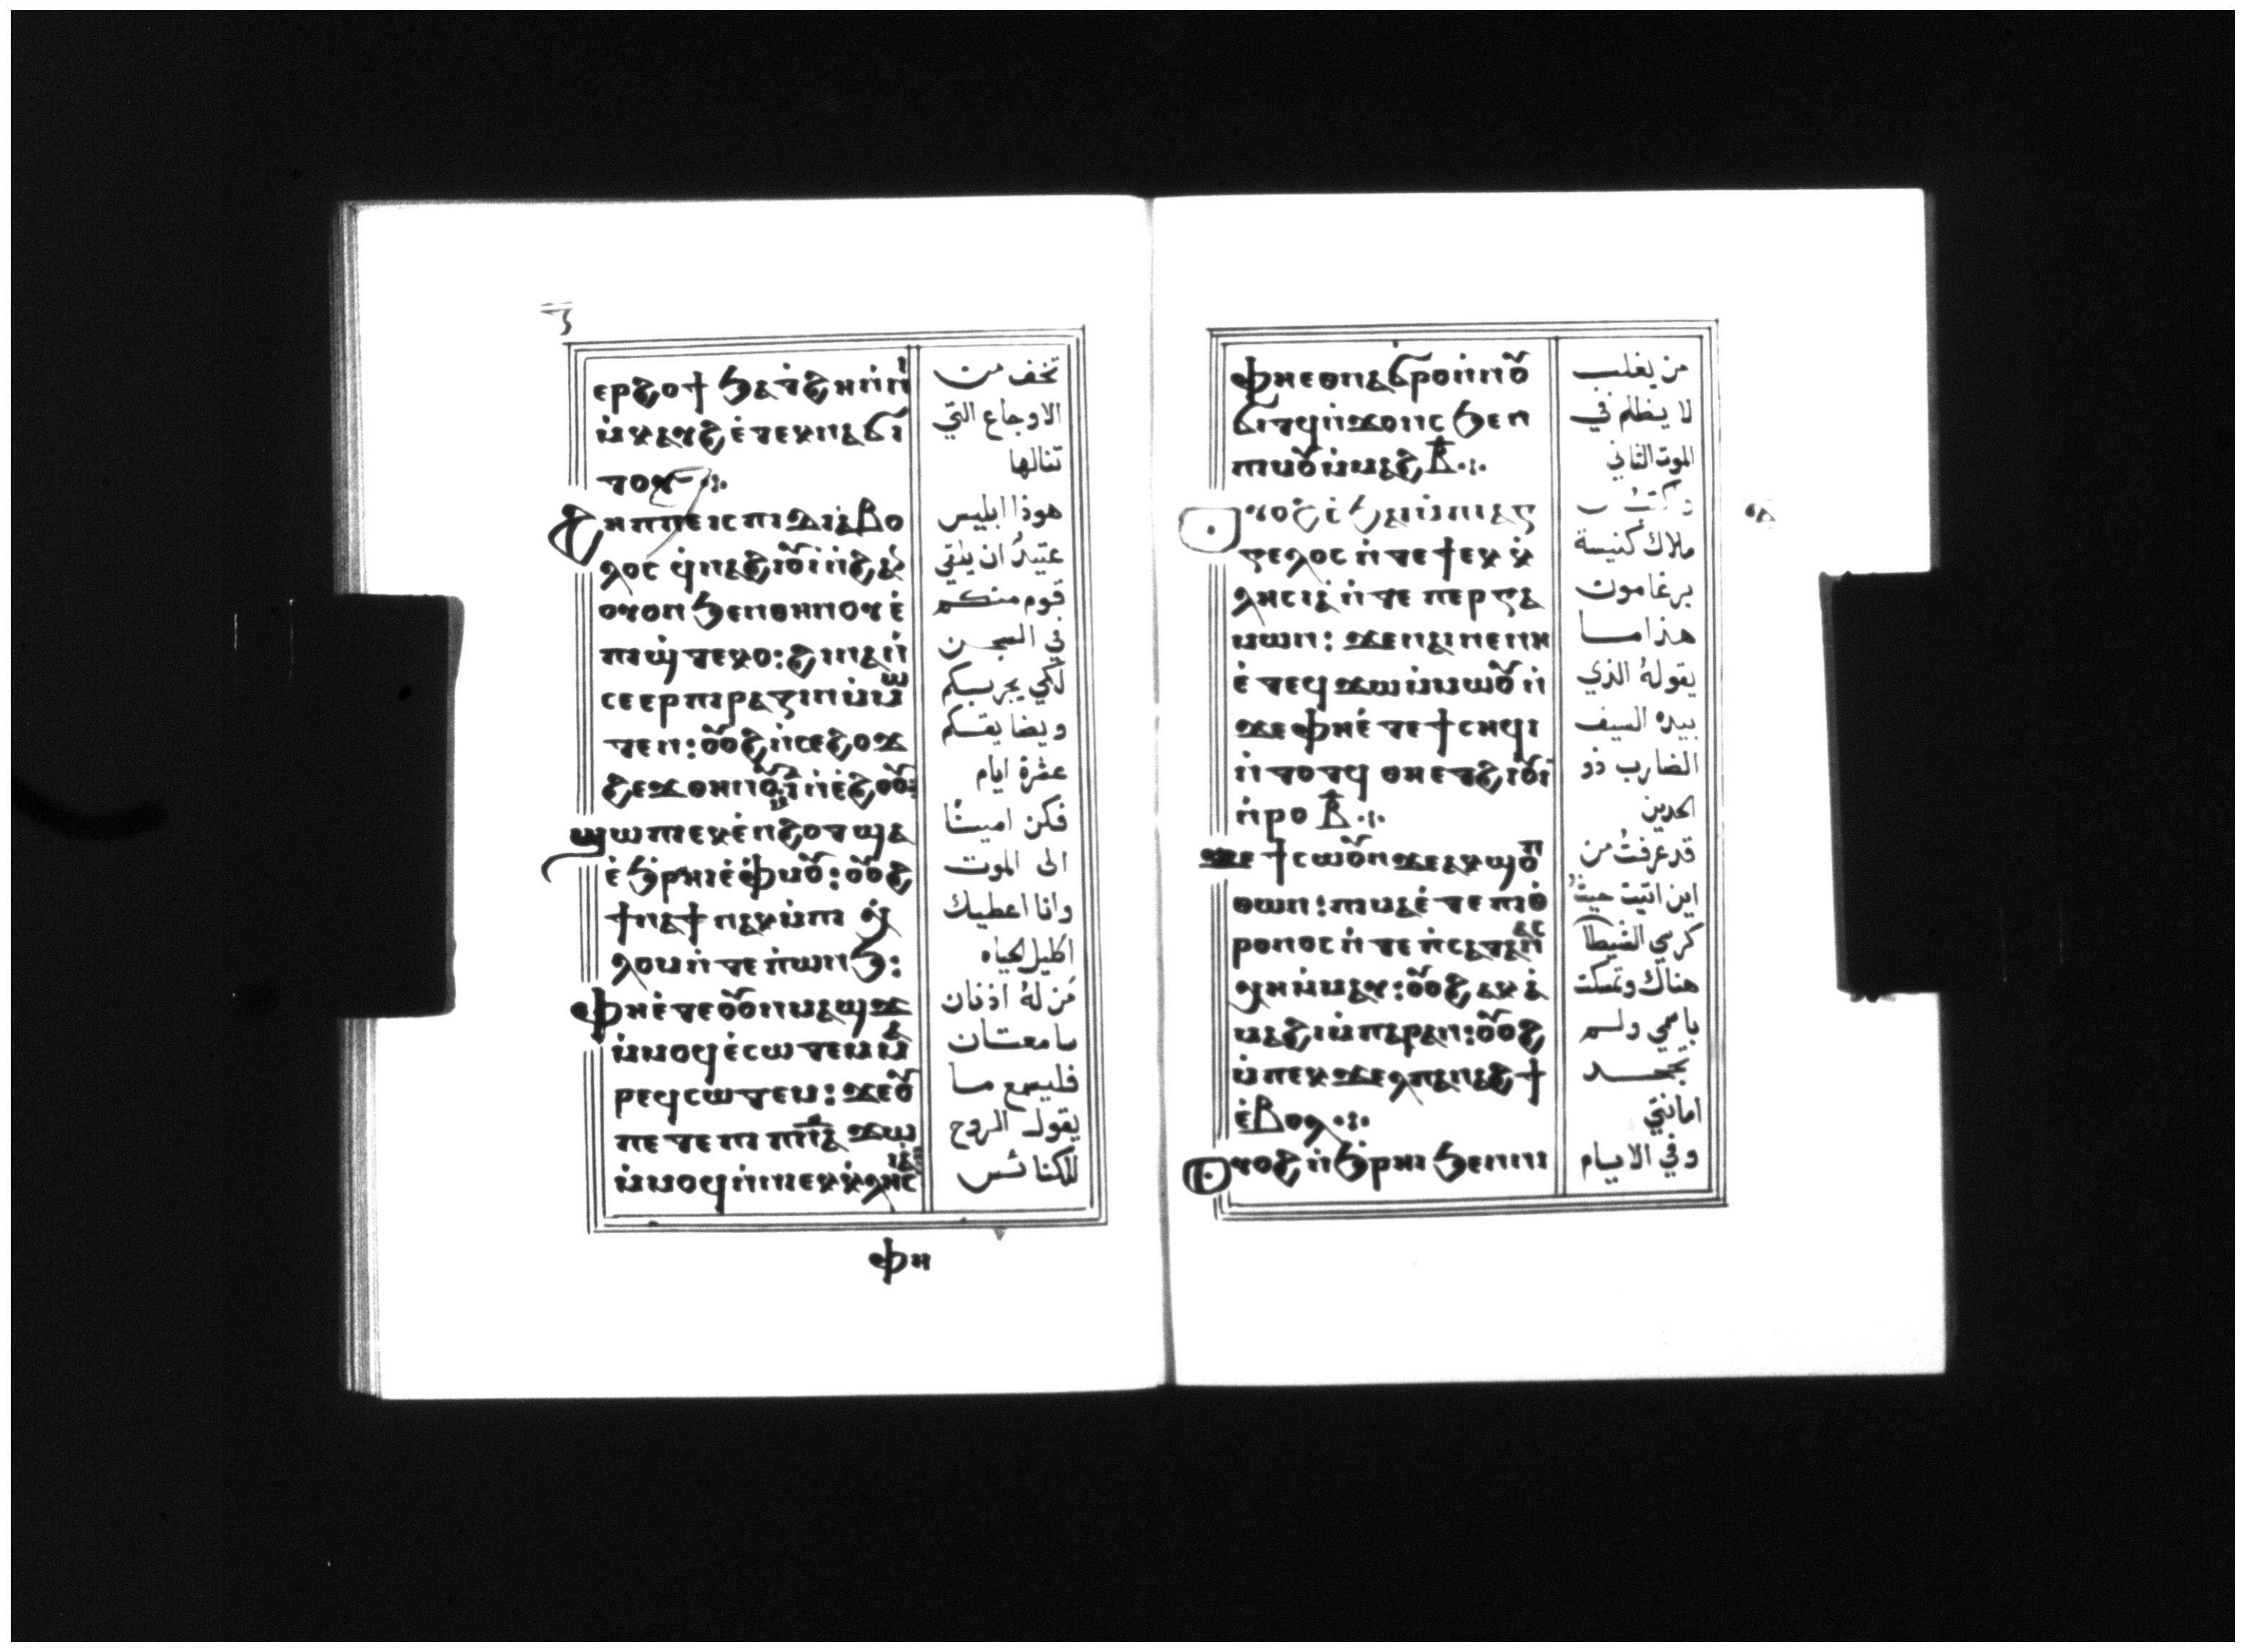 ⲉⲣϩⲟϯ ϧⲁⲧ̀ϩⲏ ⲛ̀ⲛⲓ
ⲙ̀ⲕⲁⲩϩ ⲉ̀ⲧⲉⲕⲛⲁϭⲓ
ⲧⲟⲩ ⁘
ϩⲏⲡⲡⲉ ⲓⲥ ⲡⲓⲇⲓⲁ̀ⲃⲟ
ⲗⲟⲥ ϥ̀ⲛⲁϩⲓⲟⲩⲓ̀ ⲛ̀ϩⲁ
ⲟⲩⲟⲛ ϧⲉⲛ ⲑⲏⲛⲟⲩ ⲉ̀
ⲡⲓϣ̀ⲧⲉⲕⲟ: ϩⲓⲛⲁ ⲛ̀
ⲥⲉⲉⲣⲡⲓⲣⲁⲍⲓⲛ ⲙ̀ⲙⲱ
ⲧⲉⲛ: ⲟⲩⲟϩ ⲛ̀ⲥⲉϩⲟϫ
ϩⲉϫ ⲑⲏⲛⲟⲩ ⲛ̀ⲓ̅ ⲛ̀ⲉ̀ϩⲟⲟⲩ:
ϣⲱⲡⲓ ⲉⲕⲉ̀ⲛϩⲟⲧ ϣⲁ
ⲉ̀ϧ̀ⲣⲏⲓ ⲉ̀ⲫ̀ⲙⲟⲩ: ⲟⲩⲟϩ
ϯⲛⲁϯ ⲛⲁⲕ ⲙ̀ⲡⲓ ⲭ̀
ⲗⲟⲙ ⲛ̀ⲧⲉ ⲡ̀ⲱⲛϧ:
ⲫⲏⲉ̀ⲧⲉ ⲟⲩⲟⲛ ⲙⲁϣϫ
ⲙ̀ⲙⲟϥ ⲉ̀ⲥⲱⲧⲉⲙ ⲙⲁ
ⲣⲉϥⲥⲱⲧⲉⲙ: ϫⲉ ⲟⲩ
ⲡⲉ ⲧⲉ ⲡⲓⲡ̅ⲛ̅ⲁ̅ ϫⲱ
ⲙ̀ⲙⲟϥ ⲛ̀ⲛⲓⲉⲕⲕ̀ⲗⲏⲥⲓⲁ̀
تخف من
الاوجاع التي
تنالها
هوذا ابليس
عتيدُ ان يلقي
قوم منكم
في السجن
لكي يجربكم
ويضايقكم
عشرة ايام
فكن امينًا
الى الموت
وانا اعطيك
اكليل الحياه
مَن لهُ اذنان
سامعتان
فليسمع ما
يقول الروح
للكنائس
ⲫⲏ
ⲫⲏ ⲉⲑⲛⲁϭⲣⲟ ⲛ̀ⲛⲟⲩ
ϭⲓⲧϥ ⲛ̀ϫⲟⲛⲥ ϧⲉⲛ
ⲡⲓⲙⲟⲩ ⲙ̀ⲙⲁϩ ⲃ̅ ⁘
ⲟⲩⲟϩ ⲥ̀ϧⲁⲓ ⲙ̀ⲡⲓⲁⲅ
ⲅⲉⲗⲟⲥ ⲛ̀ⲧⲉ ϯⲉⲕⲕ̀
ⲗⲏⲥⲓⲁ̀ ⲛ̀ⲧⲉ ⲡⲉⲣⲅⲁ
ⲙⲱⲛ: ϫⲉ ⲛⲁⲓ ⲛⲉ ⲛⲏ
ⲉ̀ⲧⲉϥϫⲱ ⲙ̀ⲙⲱⲟⲩ ⲛ̀
ϫⲉ ⲫⲏⲉ̀ⲧⲉ ϯⲥⲏϥⲓ
ⲛ̀ⲧⲟⲧϥ ⲑⲏ ⲉⲧϩⲓⲟⲩⲓ
ⲛ̀ⲣⲟ ⲃ̅ ⁘
ϫⲉ ϯⲥⲱⲟⲩⲛ ϫⲉ ⲁⲕϣⲟⲡ
ⲑⲱⲛ: ⲡⲓⲙⲁ ⲉ̀ⲧⲉ ⲡⲓⲑ̀
ⲣⲟⲛⲟⲥ ⲛ̀ⲧⲉ ⲛ̀ⲥⲁⲧⲁⲛⲁⲥ
ⲭⲏ ⲙ̀ⲙⲁⲩ: ⲟⲩⲟϩ ⲁⲕⲁ̀
ⲙⲁϩⲓ ⲙ̀ⲡⲁⲣⲁⲛ: ⲟⲩⲟϩ
ⲙ̀ⲡⲉⲕϫⲉⲗ ⲡⲁⲛⲁϩϯ
ⲉ̀ⲃⲟⲗ ⁘
ⲟⲩⲟϩ ⲛ̀ϧ̀ⲣⲏⲓ ϧⲉⲛ ⲛⲓ
من يغلب
لا يظلم في
الموت الثاني
وكتُب
ملاك كنيسة
برغامون
هذا ما
يقولهُ الذي
بيده السيف
الضارب ذو
الحدين
قد عرفتُ من
اين اتيت حيثُ
كرسي الشيطان
هناك وتمسكت
باسمي ولم
تجحد
امانتي
وفي الايام